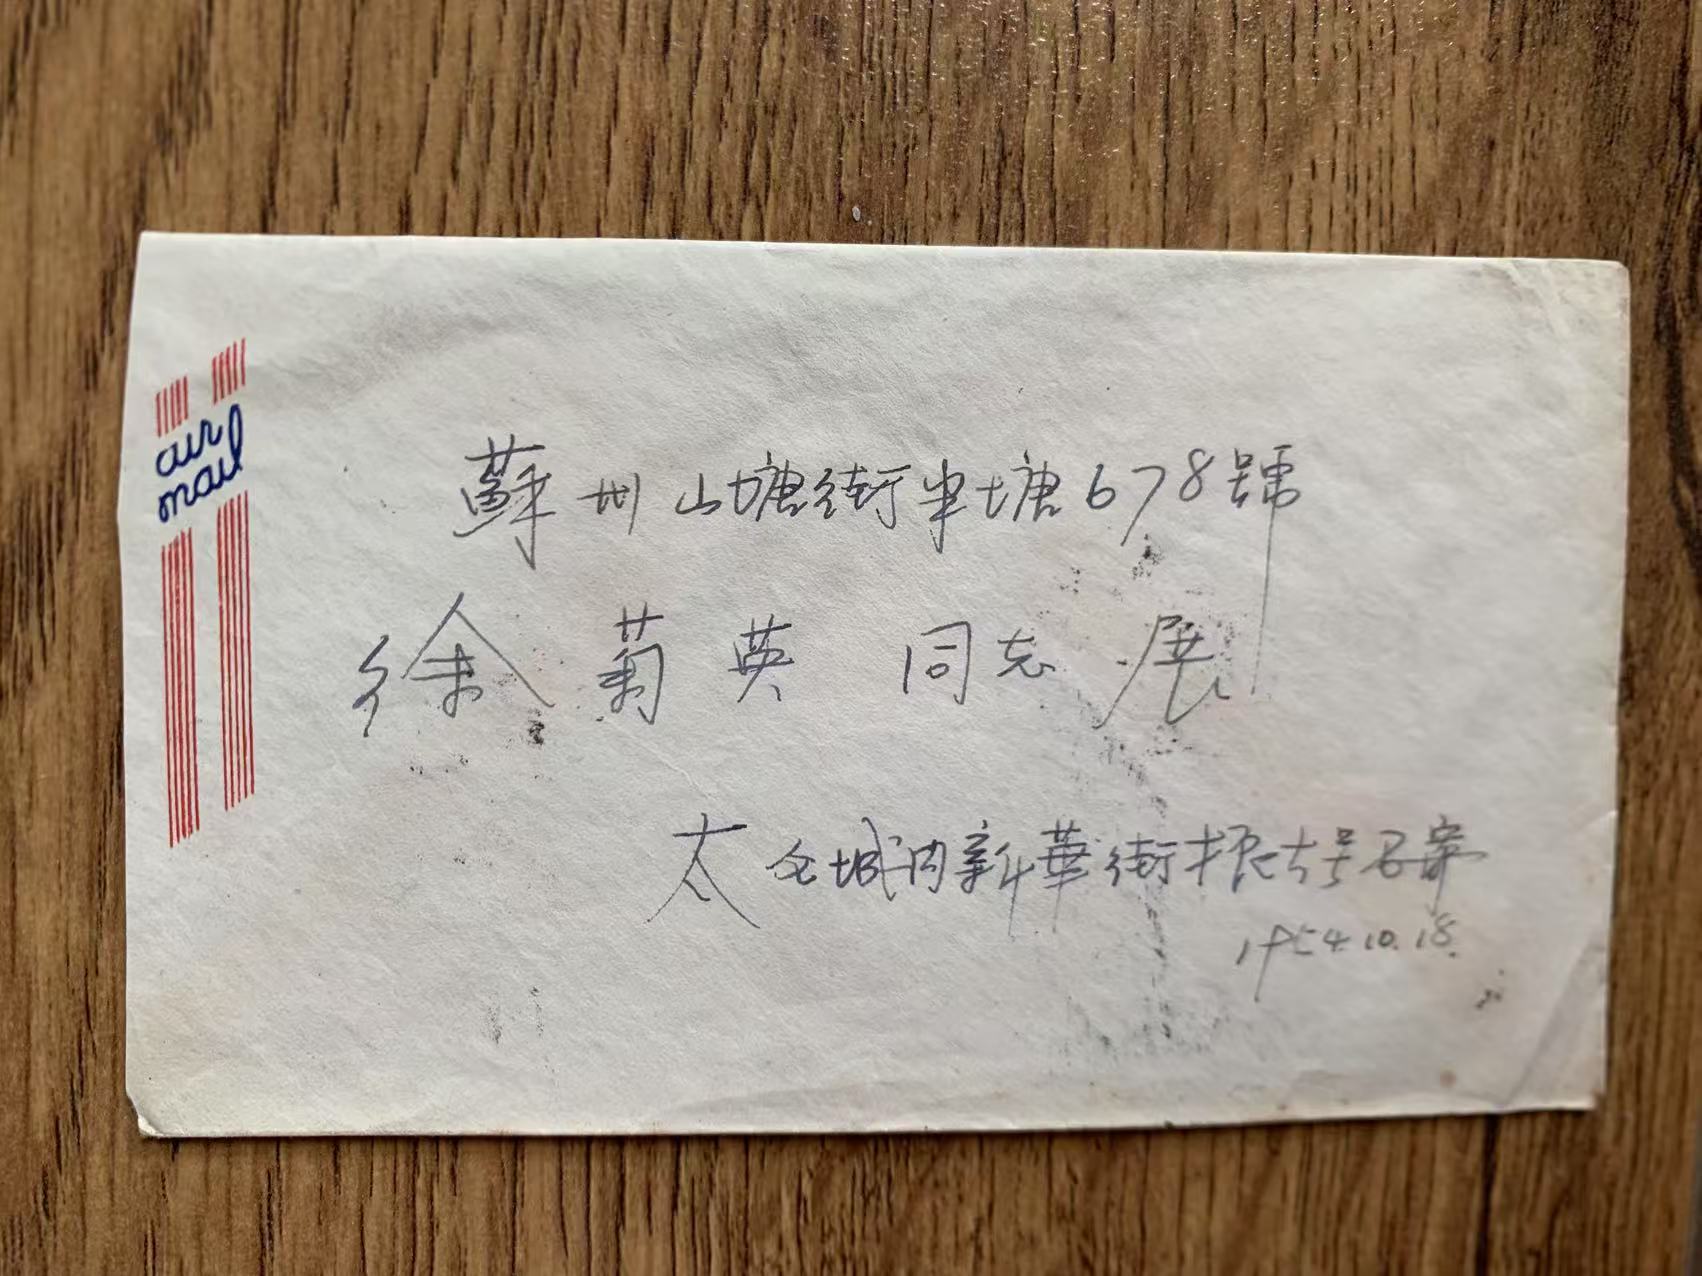 air
mail
蘇州山塘街半塘678號
徐菊英 同志 展
太仓城内新華街振吉号石寄
1954.10.18.